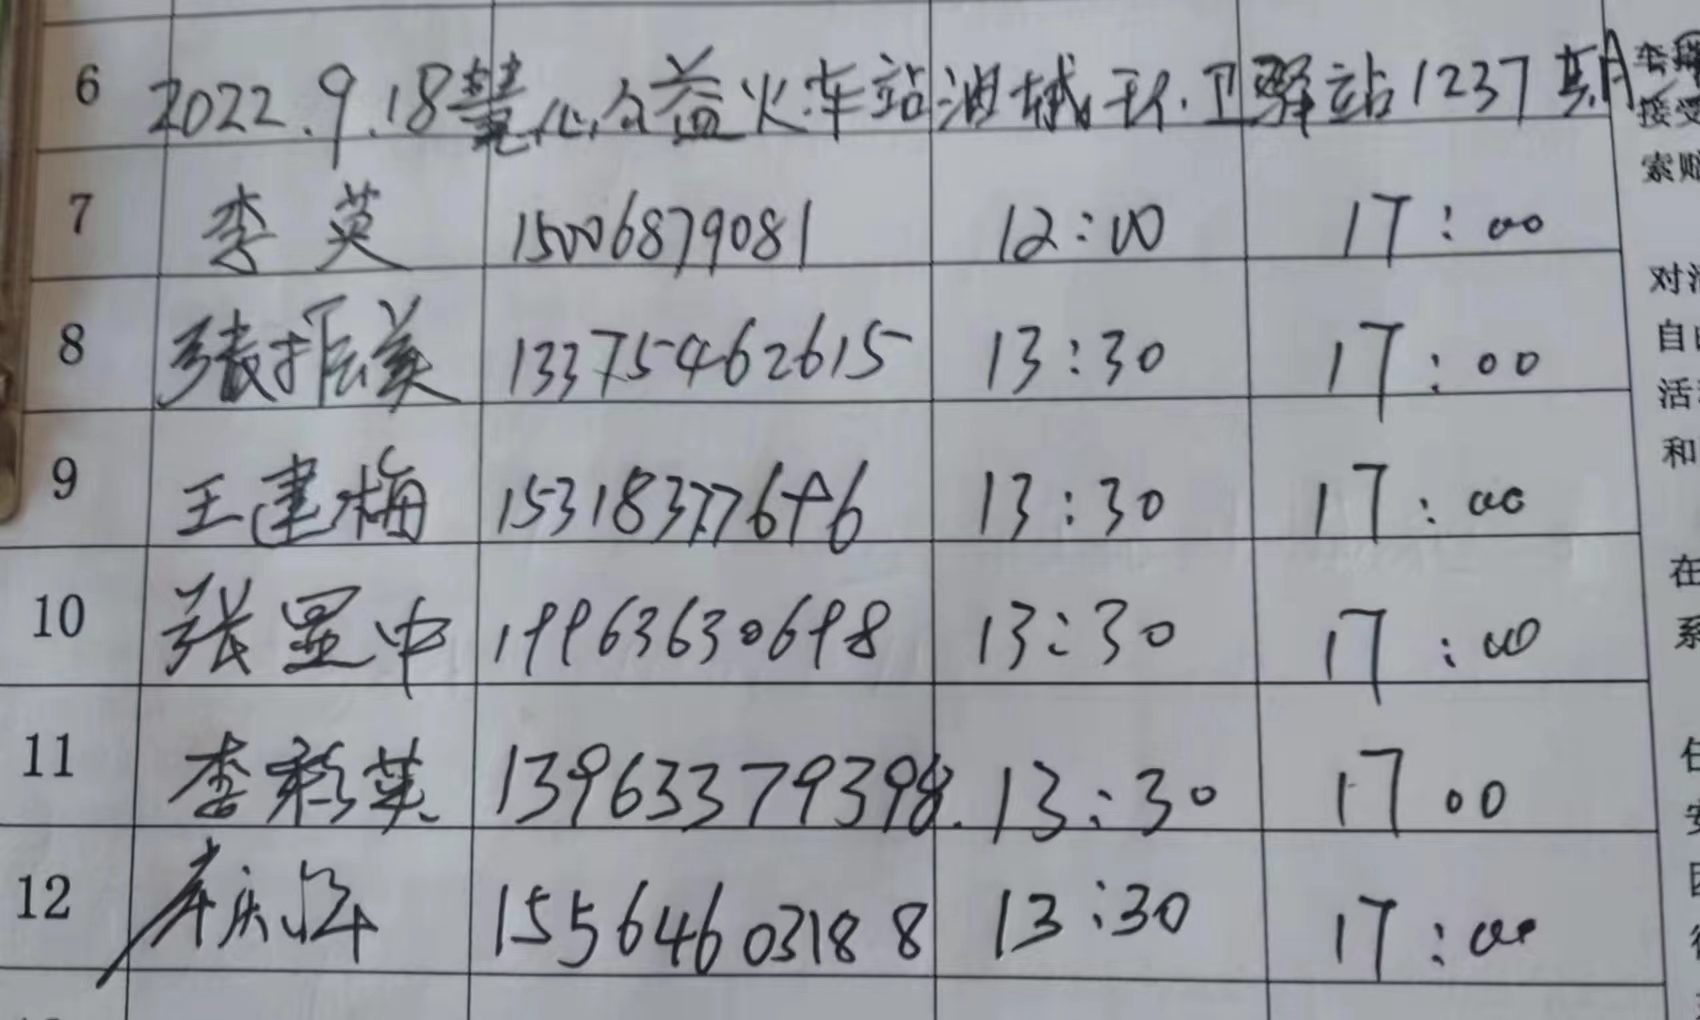 6 2022.9.18慧心公益火车站油城环卫驿站1237期
7 李英 15006879081 12:00 17:00
8 张振美 13375462615 13:30 17:00
9 王建梅 15318377696 13:30 17:00
10 张显中 19963630698 13:30 17:00
11 李彩英 13963379398. 13:30 17 00
12 15564603188 13:30 17:00
接受
索赔
对活
自
活
和
在
系